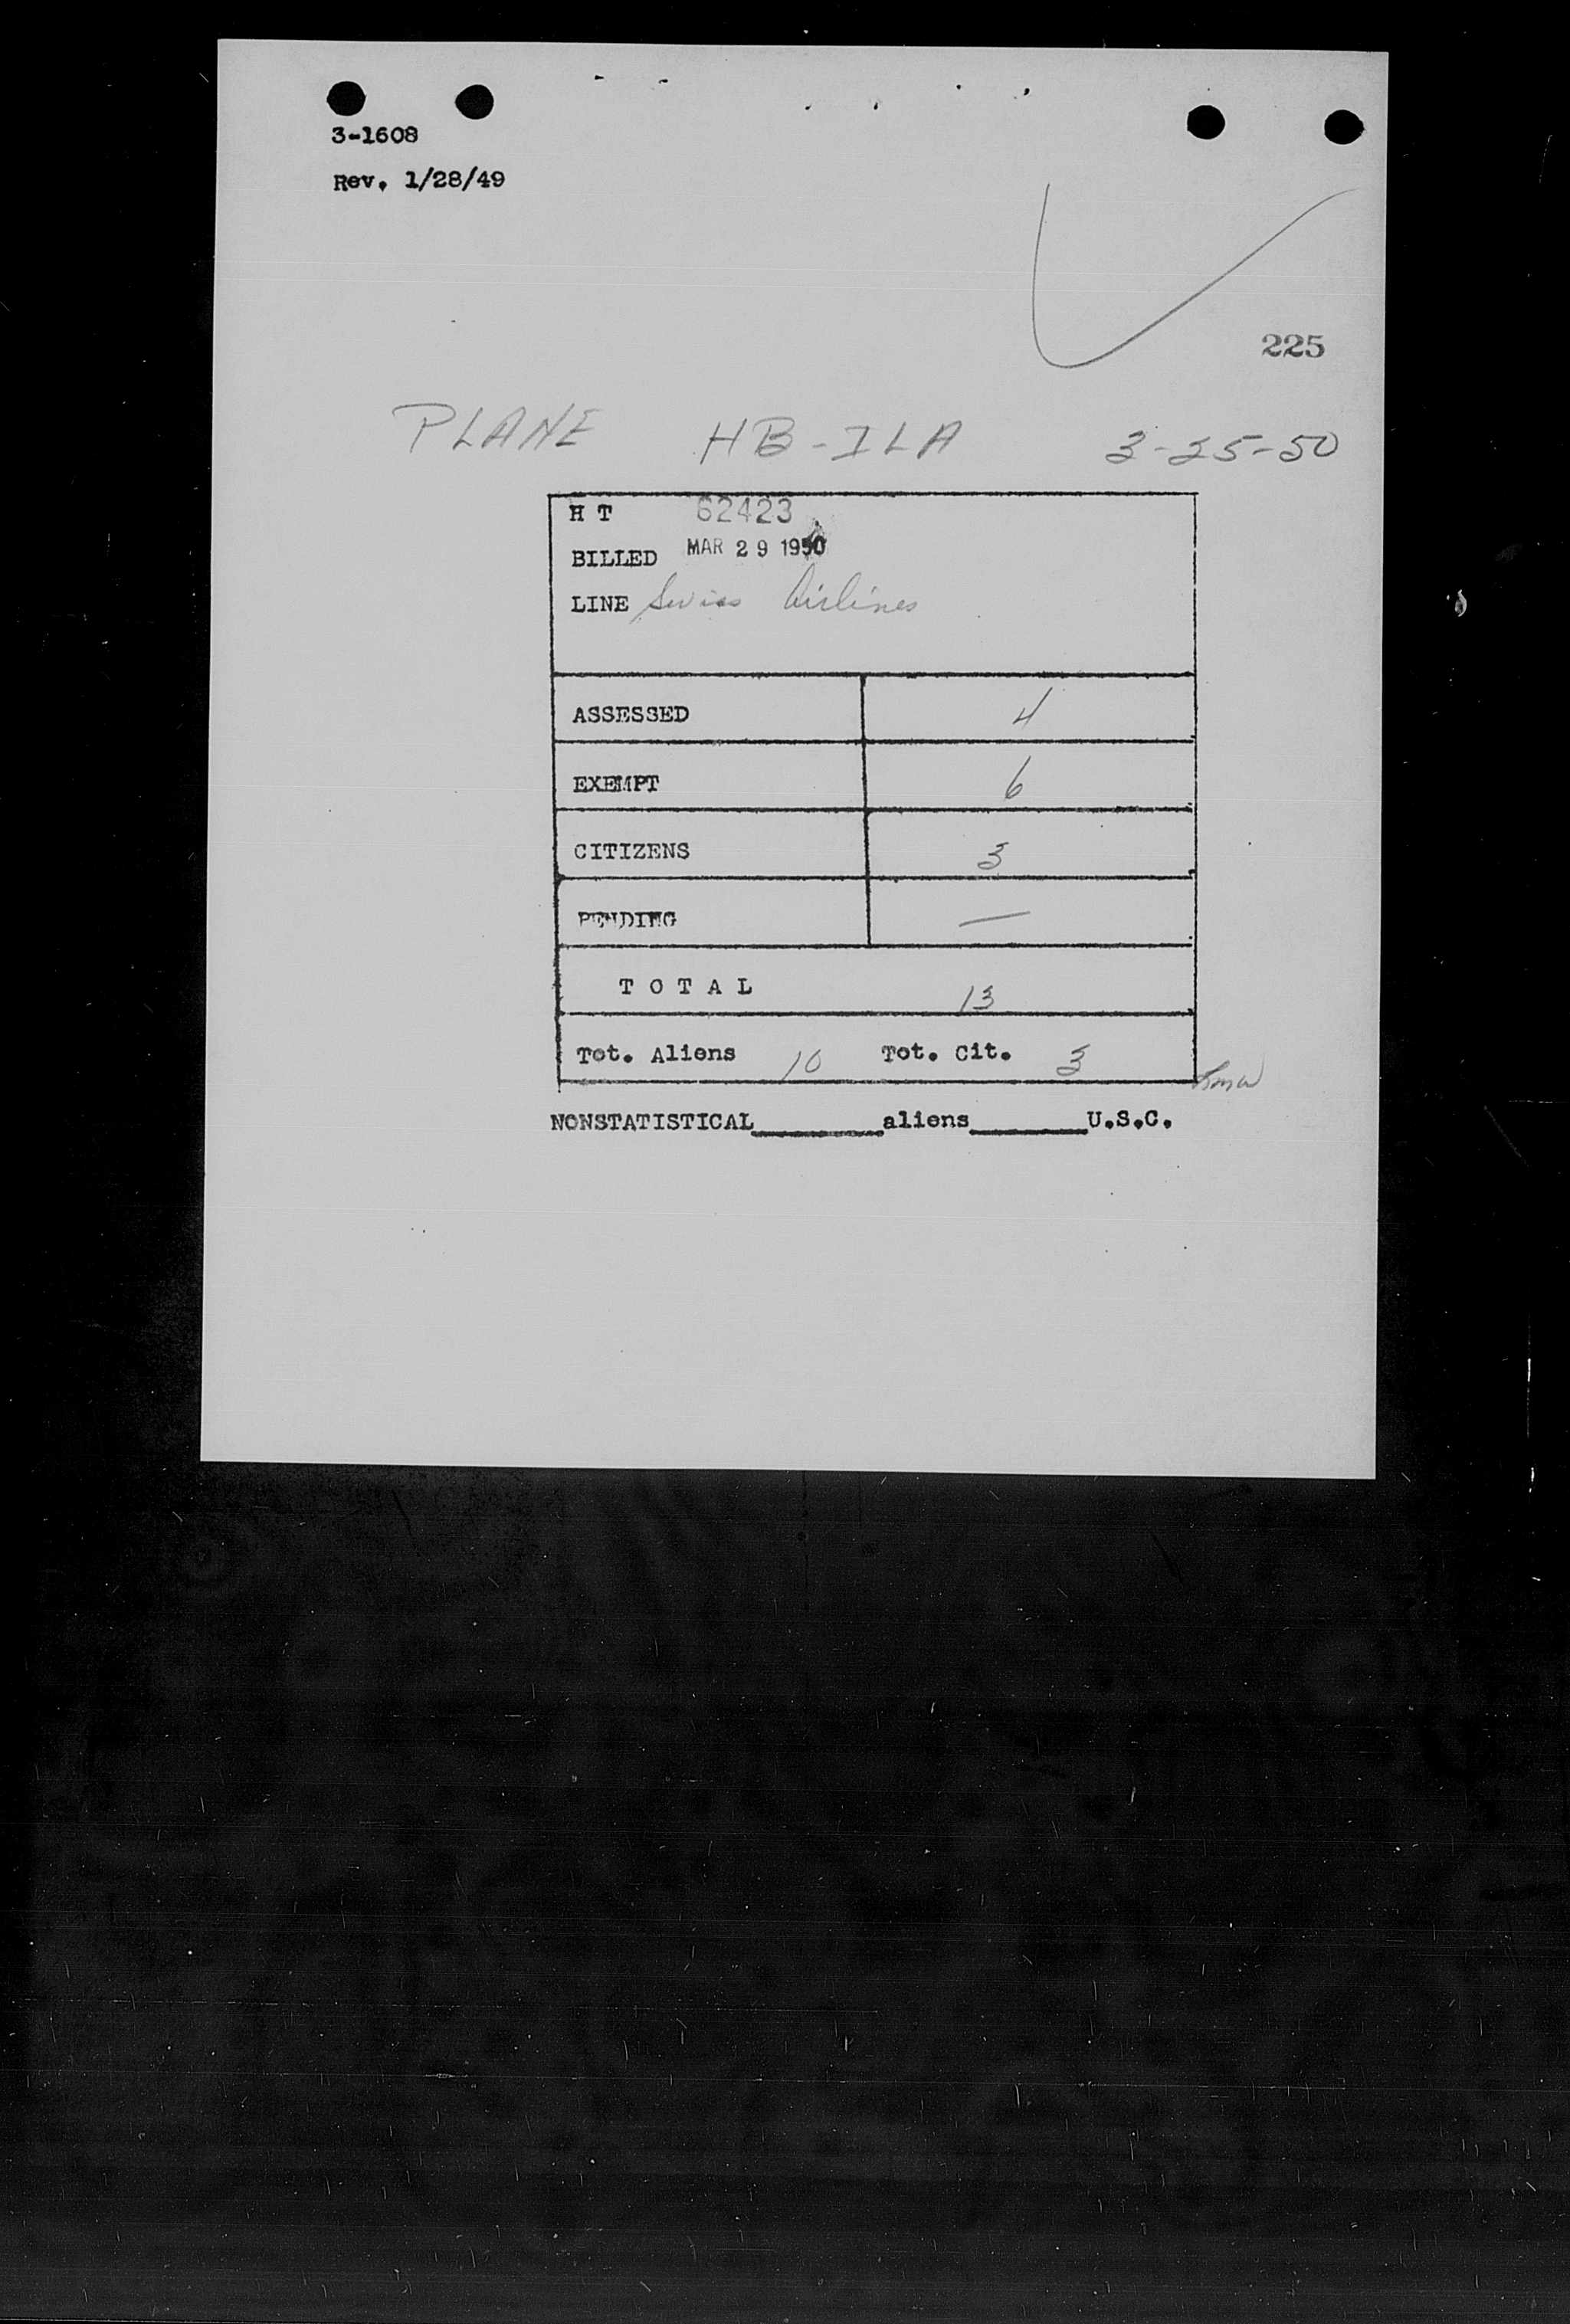 3-1608
Rev. 1/28/49
225
PLANE HB-ILA 3-25-50
H T 62423
BILLED MAR 29 1950
LINE Swiss Airlines
ASSESSED 4
EXEMPT 6
CITIZENS 3
PENDING —
T O T A L 13
Tot. Aliens 10 Tot. Cit. 3
NONSTATISTICAL________aliens_______U.S.C.